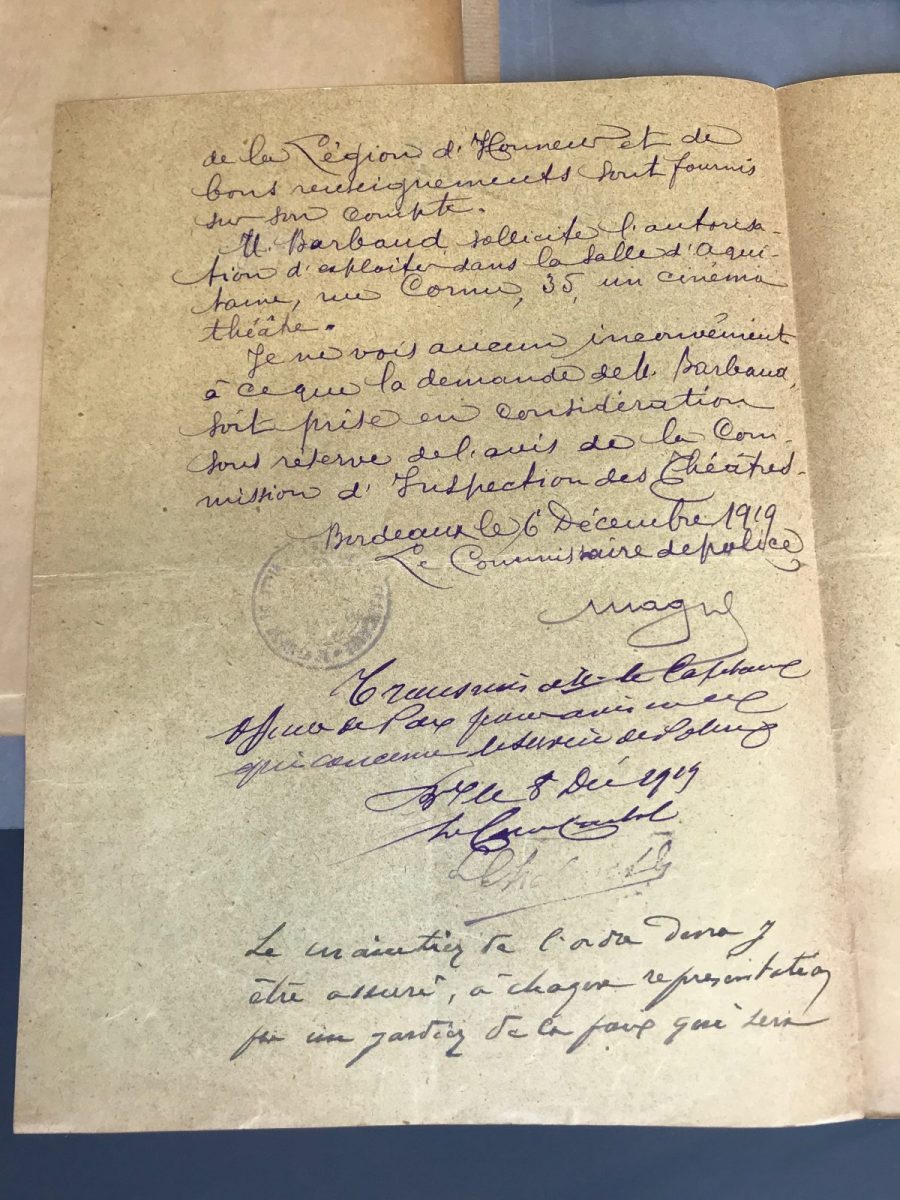 de la Légion d'Honneur et de
bons renseignements sont fournis
sur son compte.
M. Barbaud sollicite l'autorisa-
tion d'exploiter dans la Salle d'Aqui-
taine, rue Cornu, 35, un cinéma
théâtre.
Je ne vois aucun inconvénient
à ce que la demande de M. Barbaud,
soit prise en considération
sous réserve de l'avis de la Com-
mission d'Inspection des Théâtres.
Bordeaux le 6 Décembre 1919
Le Commissaire de police
Transmis à M. le Capitaine
Officier de Paix pour avis en ce
qui concerne le service de
Bx le 8 Déc 1919
Le
Le maintien de l'ordre devra y
être assuré, à chaque représentation
par un gardien de la paix qui sera